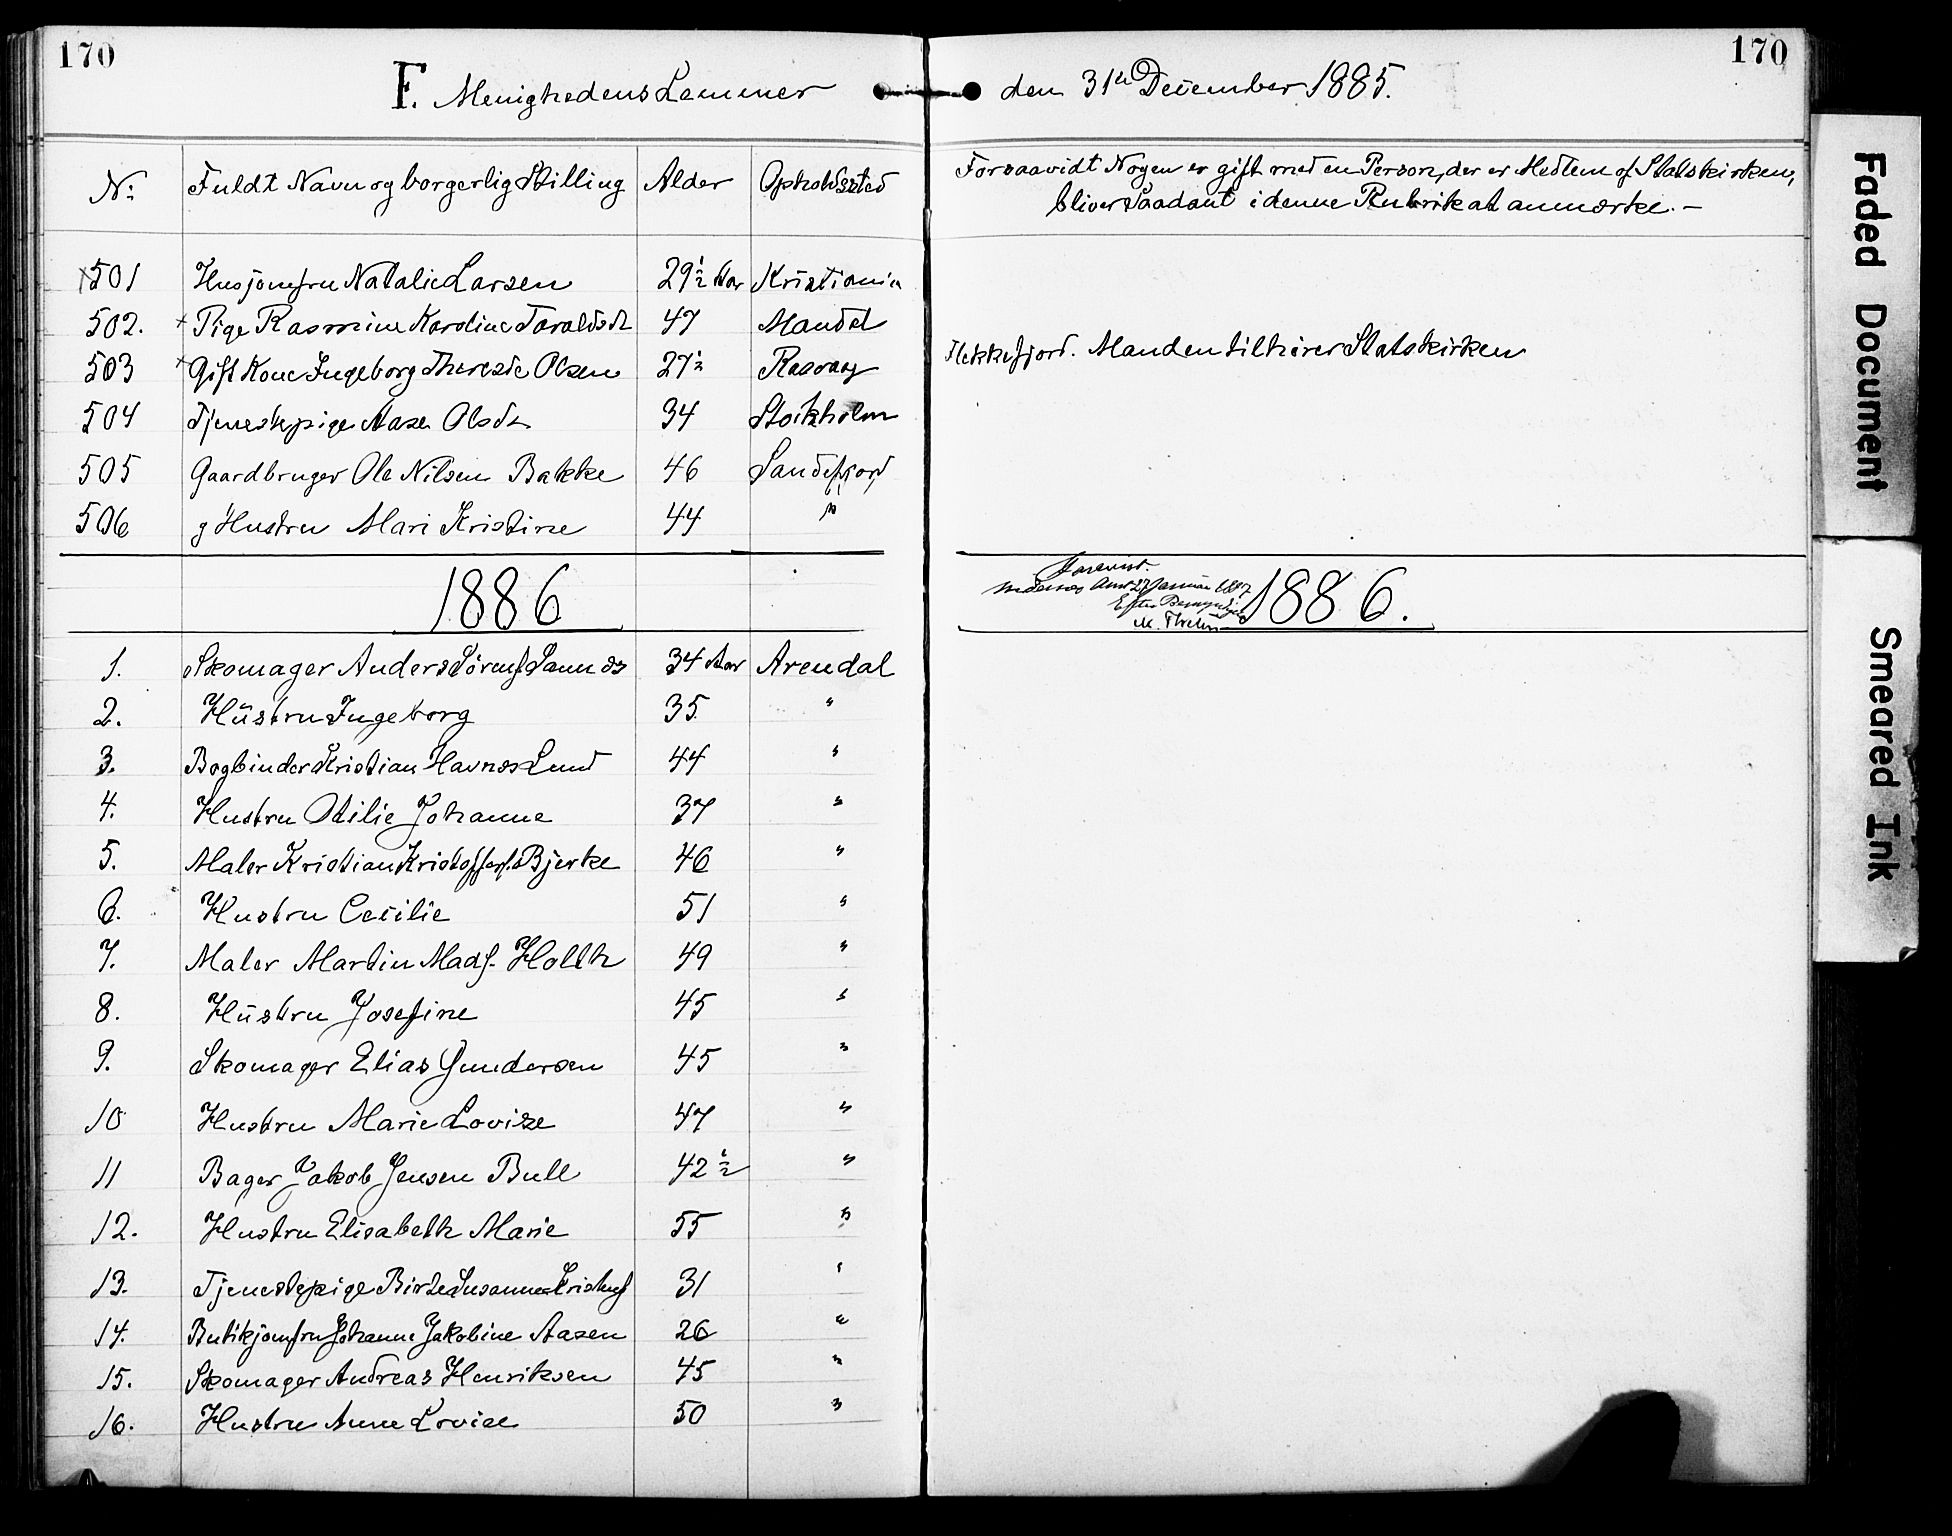 170
170
F. Menighedens Lemmer den 31te December 1885.
No: Fuldt Navn og borgerlig Stilling Alder Opholdssted Forsaavidt Nogen er gift med en Person, der er Medlem af Statskirken,
bliver Saadant i denne Rubrik at anmærke. —
501 Husjomfru Natalie Larsen 29½ Aar Kristiania
502. + Pige Rasmine Karoline Taraldsdt 47 Mandal
503 + Gift Kone Ingeborg Therese Olsen 27½ Rasvaag Flekkefjord. Manden tilhører Statskirken
504 Tjenestepige Aase Olsdt. 34 Stockholm
505 Gaardbruger Ole Nilsen Bakke 46 Sandefjord
506 g Hustru Mari Kristine 44 "
1886 1886.
Januar 1887
Efter
M.
1. Skomager Anders Sørens. 34 Aar Arendal
2. Hustru Ingeborg 35. "
3. Bogbinder Kristian Havnes Lund 44 "
4. Hustru Otilie Johanne 37 "
5. Maler Kristian Kristoffers. Bjerke 46 "
6. Hustru Cecilie 51 "
7. Maler Martin Mads. Holth 49 "
8. Hustru Josefine 45 "
9. Skomager Elias Gundersen 45 "
10 Hustru Marie Lovise 47 "
11 Bager Jakob Jensen Bull 42½ "
12. Hustru Elisabeth Marie 55 "
13. Tjenestepige Birte Susanne Kristens 31 "
14. Butikjomfru Johanne Jakobine Aasen 26 "
15. Skomager Andreas Henriksen 45 "
16. Hustru Anne Lovise 50 "
Faded Document
Smeared Ink